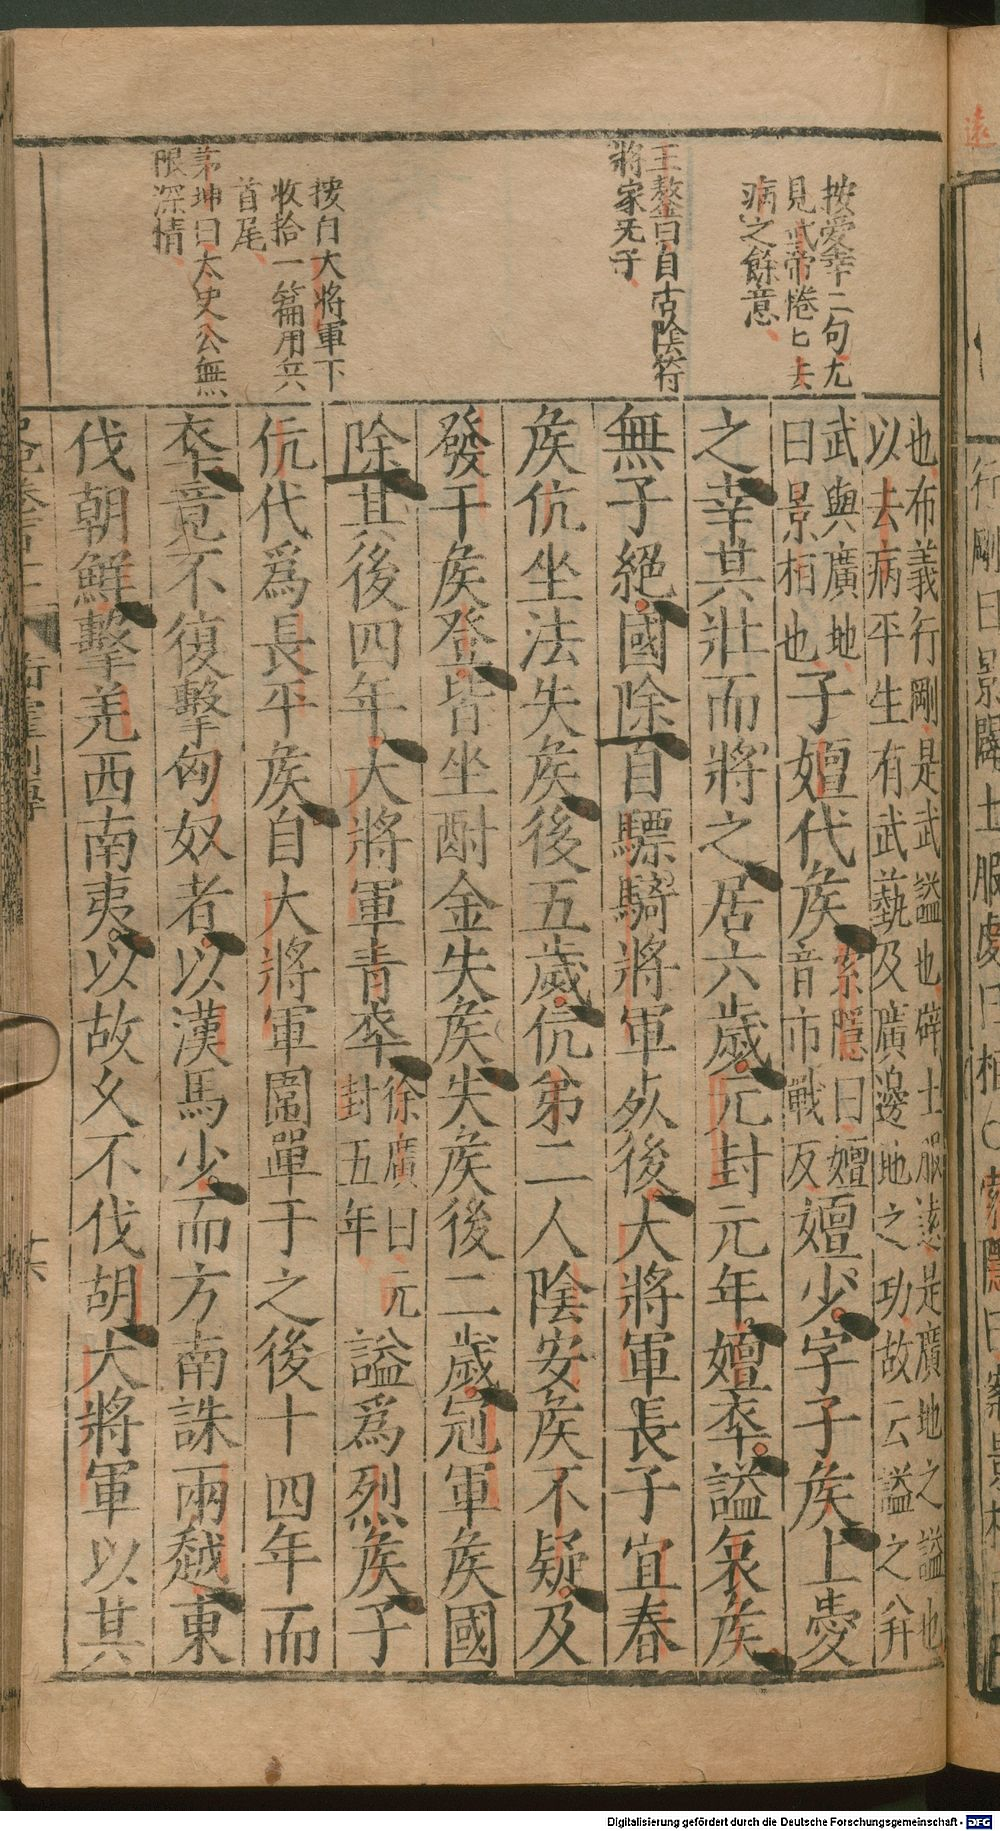 按愛幸二句尢
見武帝惓匕去
病之餘意
王鏊曰自古陰符
將家无子
按自大將軍下
收拾一篇用兵
首尾
茅坤曰太史公無
限深情
也布義行剛是武謚也辟土服遠是廣地之謚也
以去病平生有武藝及廣邊地之功故云謚之幷
武與廣地
曰景桓也
子嬗代矦
索隱曰嬗
音市戰反
嬗少字子矦上愛
之幸其壯而將之居六歲元封元年嬗卒謚哀矦
無子絕國除自驃騎將軍死後大將軍長子宜春
矦伉坐法失矦後五歲伉弟二人陰安矦不疑及
發干矦登皆坐酎金失矦失矦後二歲冠軍矦國
除其後四年大將軍青卒
徐廣曰元
封五年
謚爲烈矦子
伉代爲長平矦自大將軍圍單于之後十四年而
卒竟不復擊匈奴者以漢馬少而方南誅兩越東
伐朝鮮擊羌西南夷以故久不伐胡大將軍以其
衛霍列傳
Digitalisierung gefördert durch die Deutsche Forschungsgemeinschaft - DFG